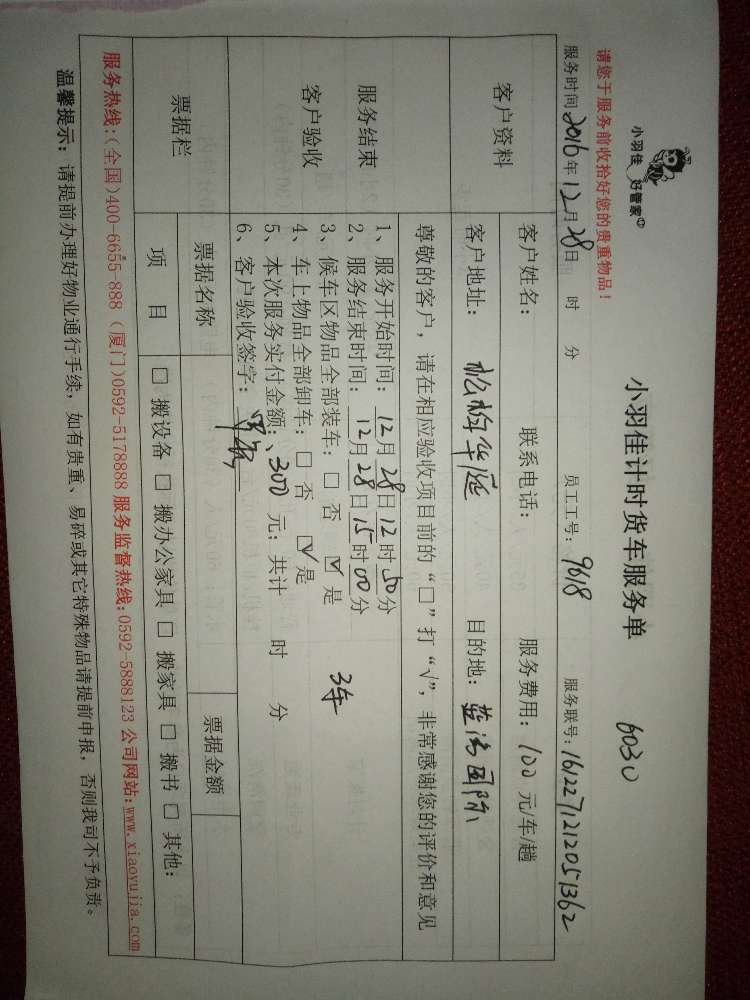 小羽佳 好管家
小羽佳计时货车服务单
6030
请您于服务前收拾好您的贵重物品！
服务时间 2016年12月28日 时 分 员工工号：9618 服务联号：1612271212051362
客户资料
客户姓名： 联系电话： 服务费用：100 元/车/趟
客户地址：松柏华庭 目的地：蓝湾国际
服务结束
客户验收
尊敬的客户，请在相应验收项目前的“□”打“√”，非常感谢您的评价和意见
1、服务开始时间：12月28日12时50分
2、服务结束时间：12月28日15时00分
3、候车区物品全部装车：□ 否 ☑ 是
3车
4、车上物品全部卸车：□ 否 ☑ 是
5、本次服务实付金额：300 元；共计 时 分
6、客户验收签字：
票据栏
票据名称 票据金额
项 目 □ 搬设备 □ 搬办公家具 □ 搬家具 □ 搬书 □ 其他：
服务热线:(全国)400-6655-888 (厦门)0592-5178888 服务监督热线:0592-5888123 公司网站:www.xiaoyujia.com
温馨提示：请提前办理好物业通行手续，如有贵重、易碎或其它特殊物品请提前申报，否则我司不予负责。